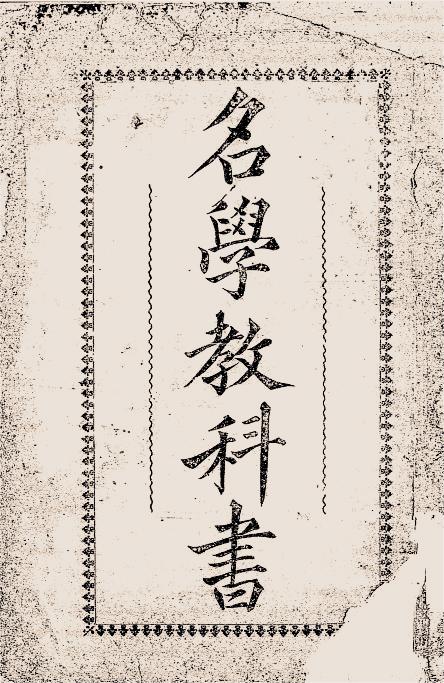 名學教科書